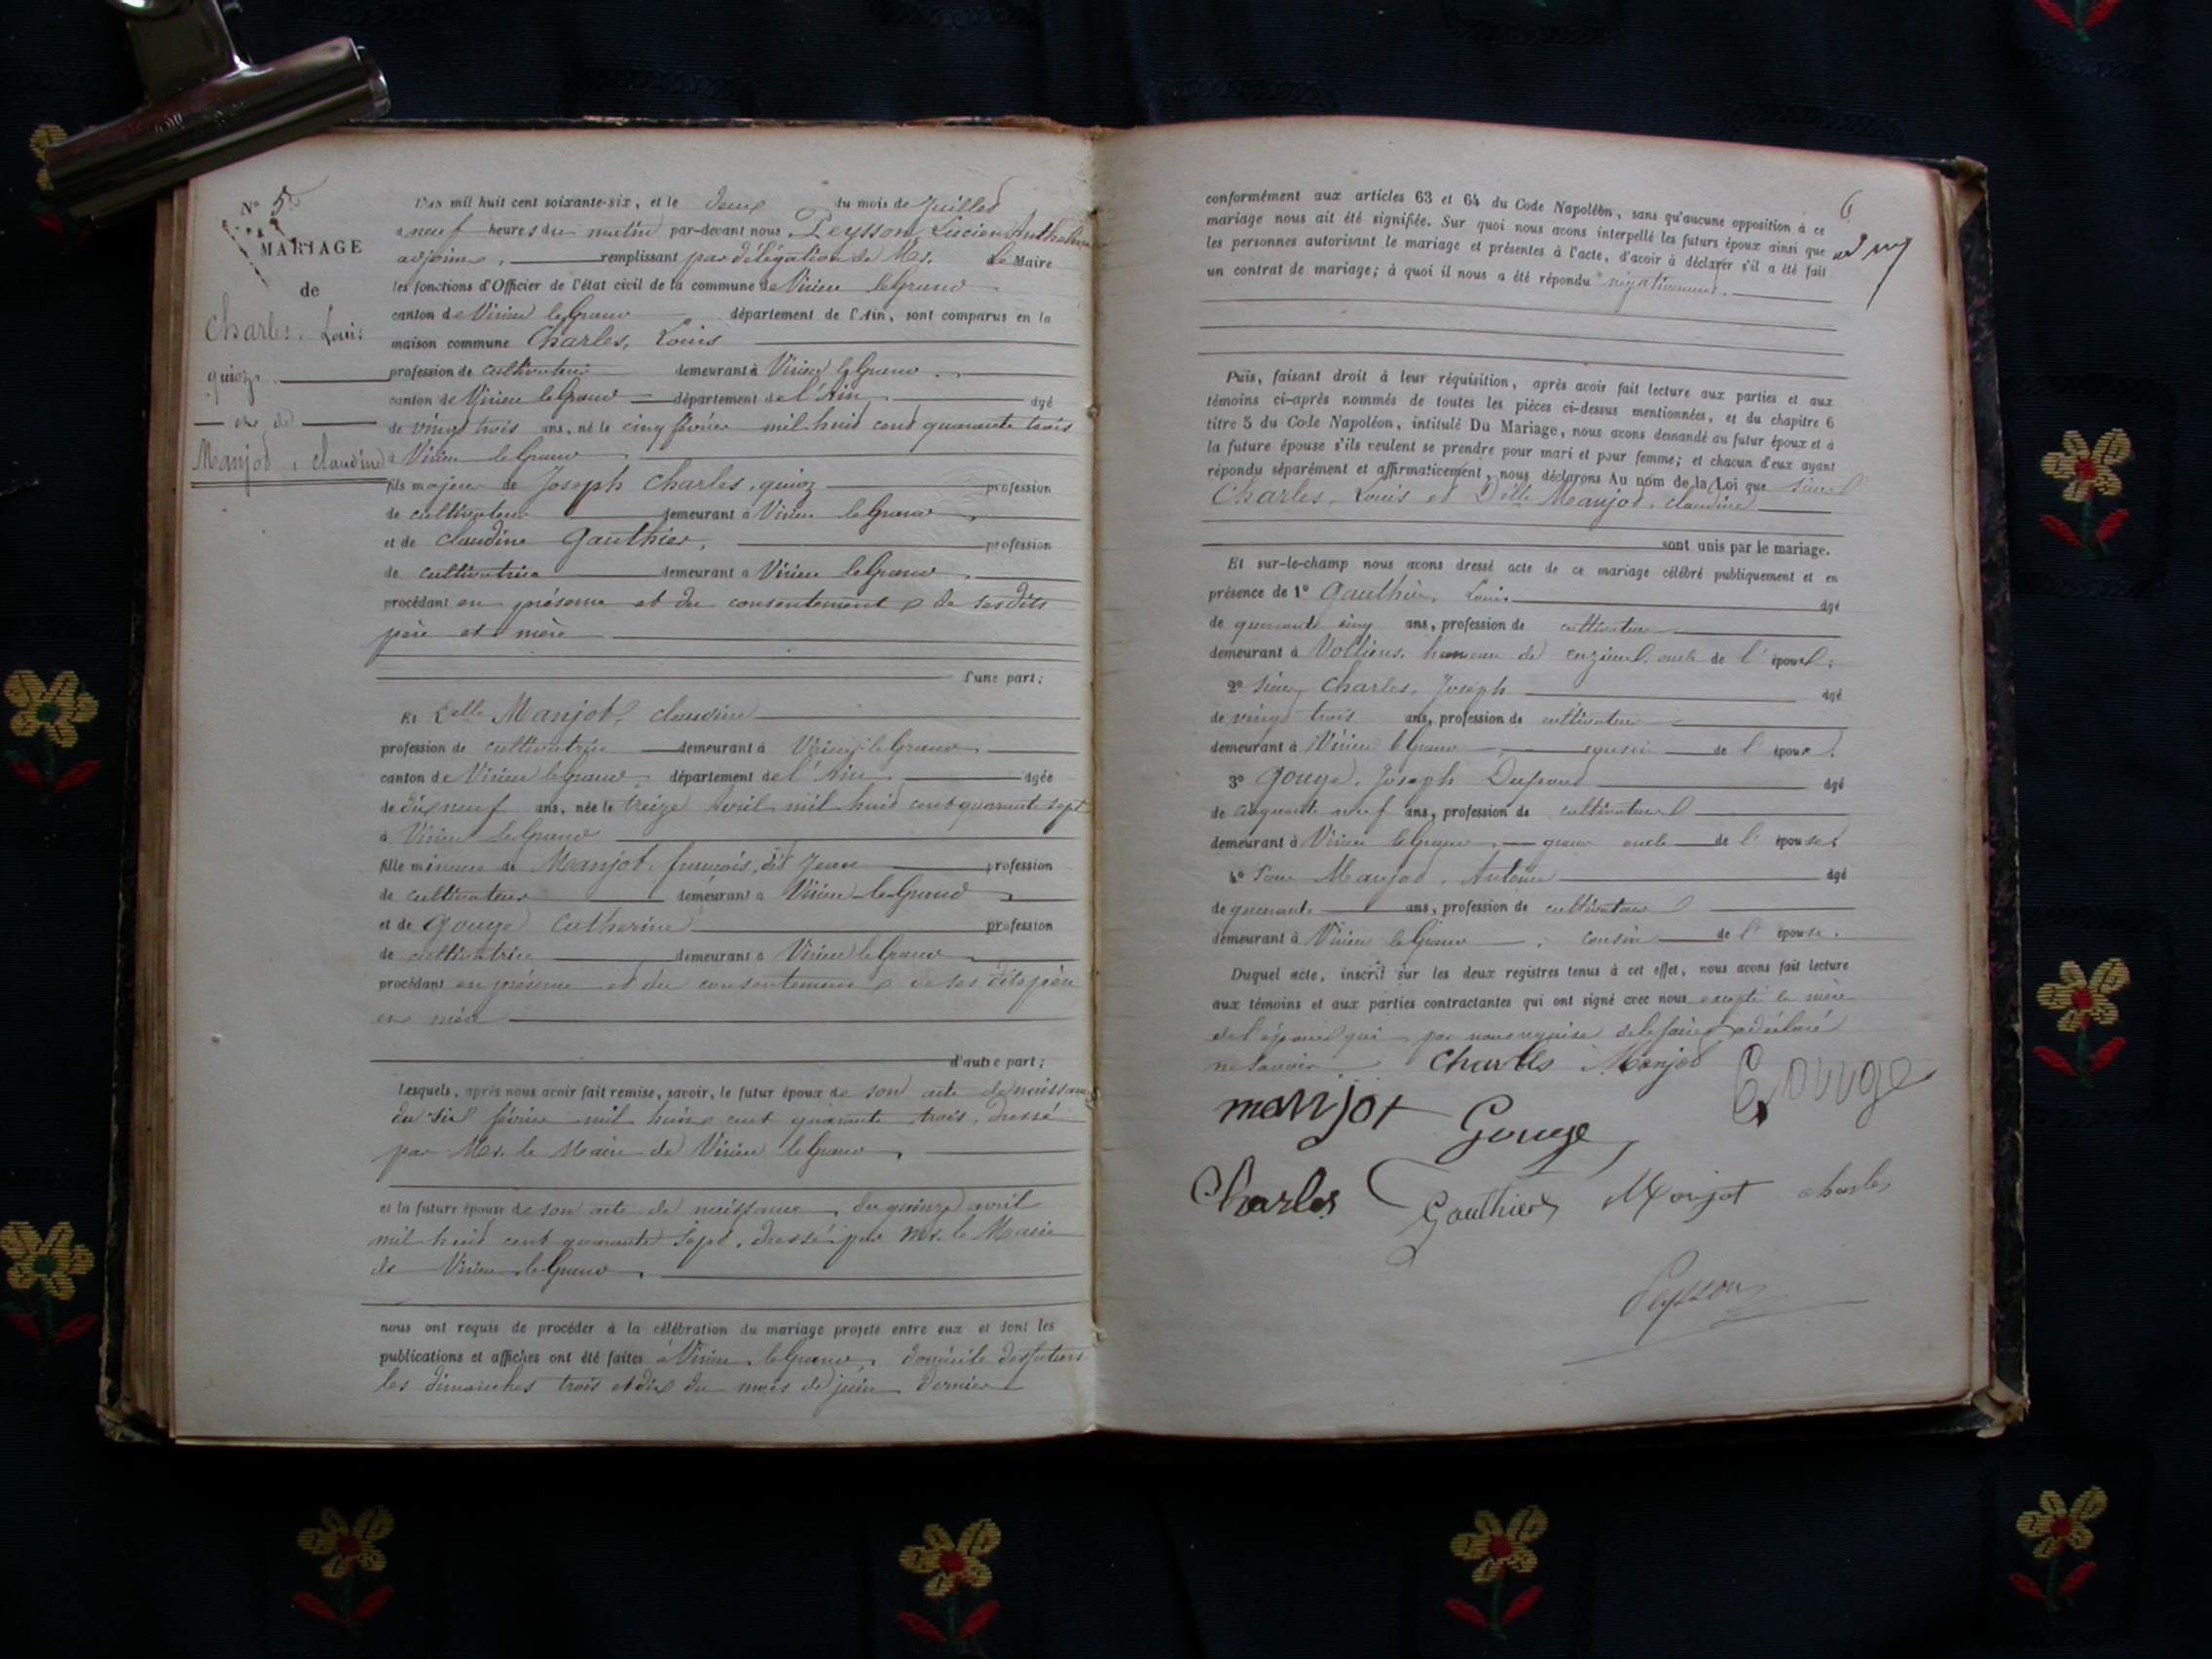 N° 5
MARIAGE
de
Charles, Louis
quioz
et de
Manjot, claudine
L'an mil huit cent soixante-six, et le deux du mois de Juillet
à neuf heures du matin par-devant nous Peysson, Lucien Anthelme
adjoint, remplissant par délégation de Mr. le Maire
les fonctions d'Officier de l'état civil de la commune de Virieu le Grand
canton de Virieu le Grand département de l'Ain, sont comparus en la
maison commune Charles, Louis
profession de cultivateur demeurant à Virieu le Grand
canton de Virieu le Grand département de l'Ain âgé
de vingt trois ans, né le cinq février mil huit cent quarante trois
à Virieu le Grand
fils majeur de Joseph Charles, quioz profession
de cultivateur demeurant à Virieu le Grand
et de Claudine Gauthier, profession
de cultivatrice demeurant à Virieu le Grand
procédant en présence et du consentement de ses dits
père et mère
d'une part;
Et Delle Manjot, claudine
profession de cultivatrice demeurant à Virieu le Grand
canton de Virieu le Grand département de l'Ain âgée
de dix neuf ans, née le treize avril mil huit cent quarante sept
à Virieu le Grand
fille mineure de Manjot, français, dit Jeune profession
de cultivateur demeurant à Virieu le Grand
et de Gouge Catherine profession
de cultivatrice demeurant à Virieu le Grand
procédant en présence et du consentement de ses dits père
et mère
d'autre part;
Lesquels, après nous avoir fait remise, savoir, le futur époux de son acte de naissance
du six février mil huit cent quarante trois, dressé
par Mr. le Maire de Virieu le Grand,
et la future épouse de son acte de naissance, du quinze avril
mil huit cent quarante sept, dressé par Mr. le Maire
de Virieu le Grand,
nous ont requis de procéder à la célébration du mariage projeté entre eux et dont les
publications et affiches ont été faites à Virieu le Grand, domicile des futurs
les dimanches trois et dix du mois de juin dernier
6
conformément aux articles 63 et 64 du Code Napoléon, sans qu'aucune opposition à ce
mariage nous ait été signifiée. Sur quoi nous avons interpellé les futurs époux ainsi que
les personnes autorisant le mariage et présentes à l'acte, d'avoir à déclarer s'il a été fait
un contrat de mariage; à quoi il nous a été répondu négativement.
Puis, faisant droit à leur réquisition, après avoir fait lecture aux parties et aux
témoins ci-après nommés de toutes les pièces ci-dessus mentionnées, et du chapitre 6
titre 5 du Code Napoléon, intitulé Du Mariage, nous avons demandé au futur époux et à
la future épouse s'ils veulent se prendre pour mari et pour femme; et chacun d'eux ayant
répondu séparément et affirmativement, nous déclarons Au nom de la Loi que sieur
Charles, Louis et Delle Manjot, claudine
sont unis par le mariage.
Et sur-le-champ nous avons dressé acte de ce mariage célébré publiquement et en
présence de 1° Gauthier, Louis âgé
de quarante cinq ans, profession de cultivateur
demeurant à hameau de oncle de l'époux;
2° sieur Charles, Joseph âgé
de vingt trois ans, profession de cultivateur
demeurant à Virieu le Grand cousin de l'époux.
3° Gouge, Joseph âgé
de cinquante neuf ans, profession de cultivateur
demeurant à Virieu le Grand, grand oncle de l'épouse
4° sieur Manjot, Antoine âgé
de quarante ans, profession de cultivateur
demeurant à Virieu le Grand, cousin de l'épouse.
Duquel acte, inscrit sur les deux registres tenus à cet effet, nous avons fait lecture
aux témoins et aux parties contractantes qui ont signé avec nous excepté la mère
de l'époux qui par nous requise de le faire a déclaré
ne savoir Charles Manjot Gouge
manjot Gouge
Charles Gauthier Manjot charles
Peysson